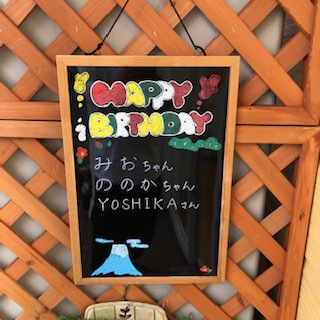 HAPPY
BIRTHDAY
みおちゃん
ののかちゃん
YOSHIKAさん